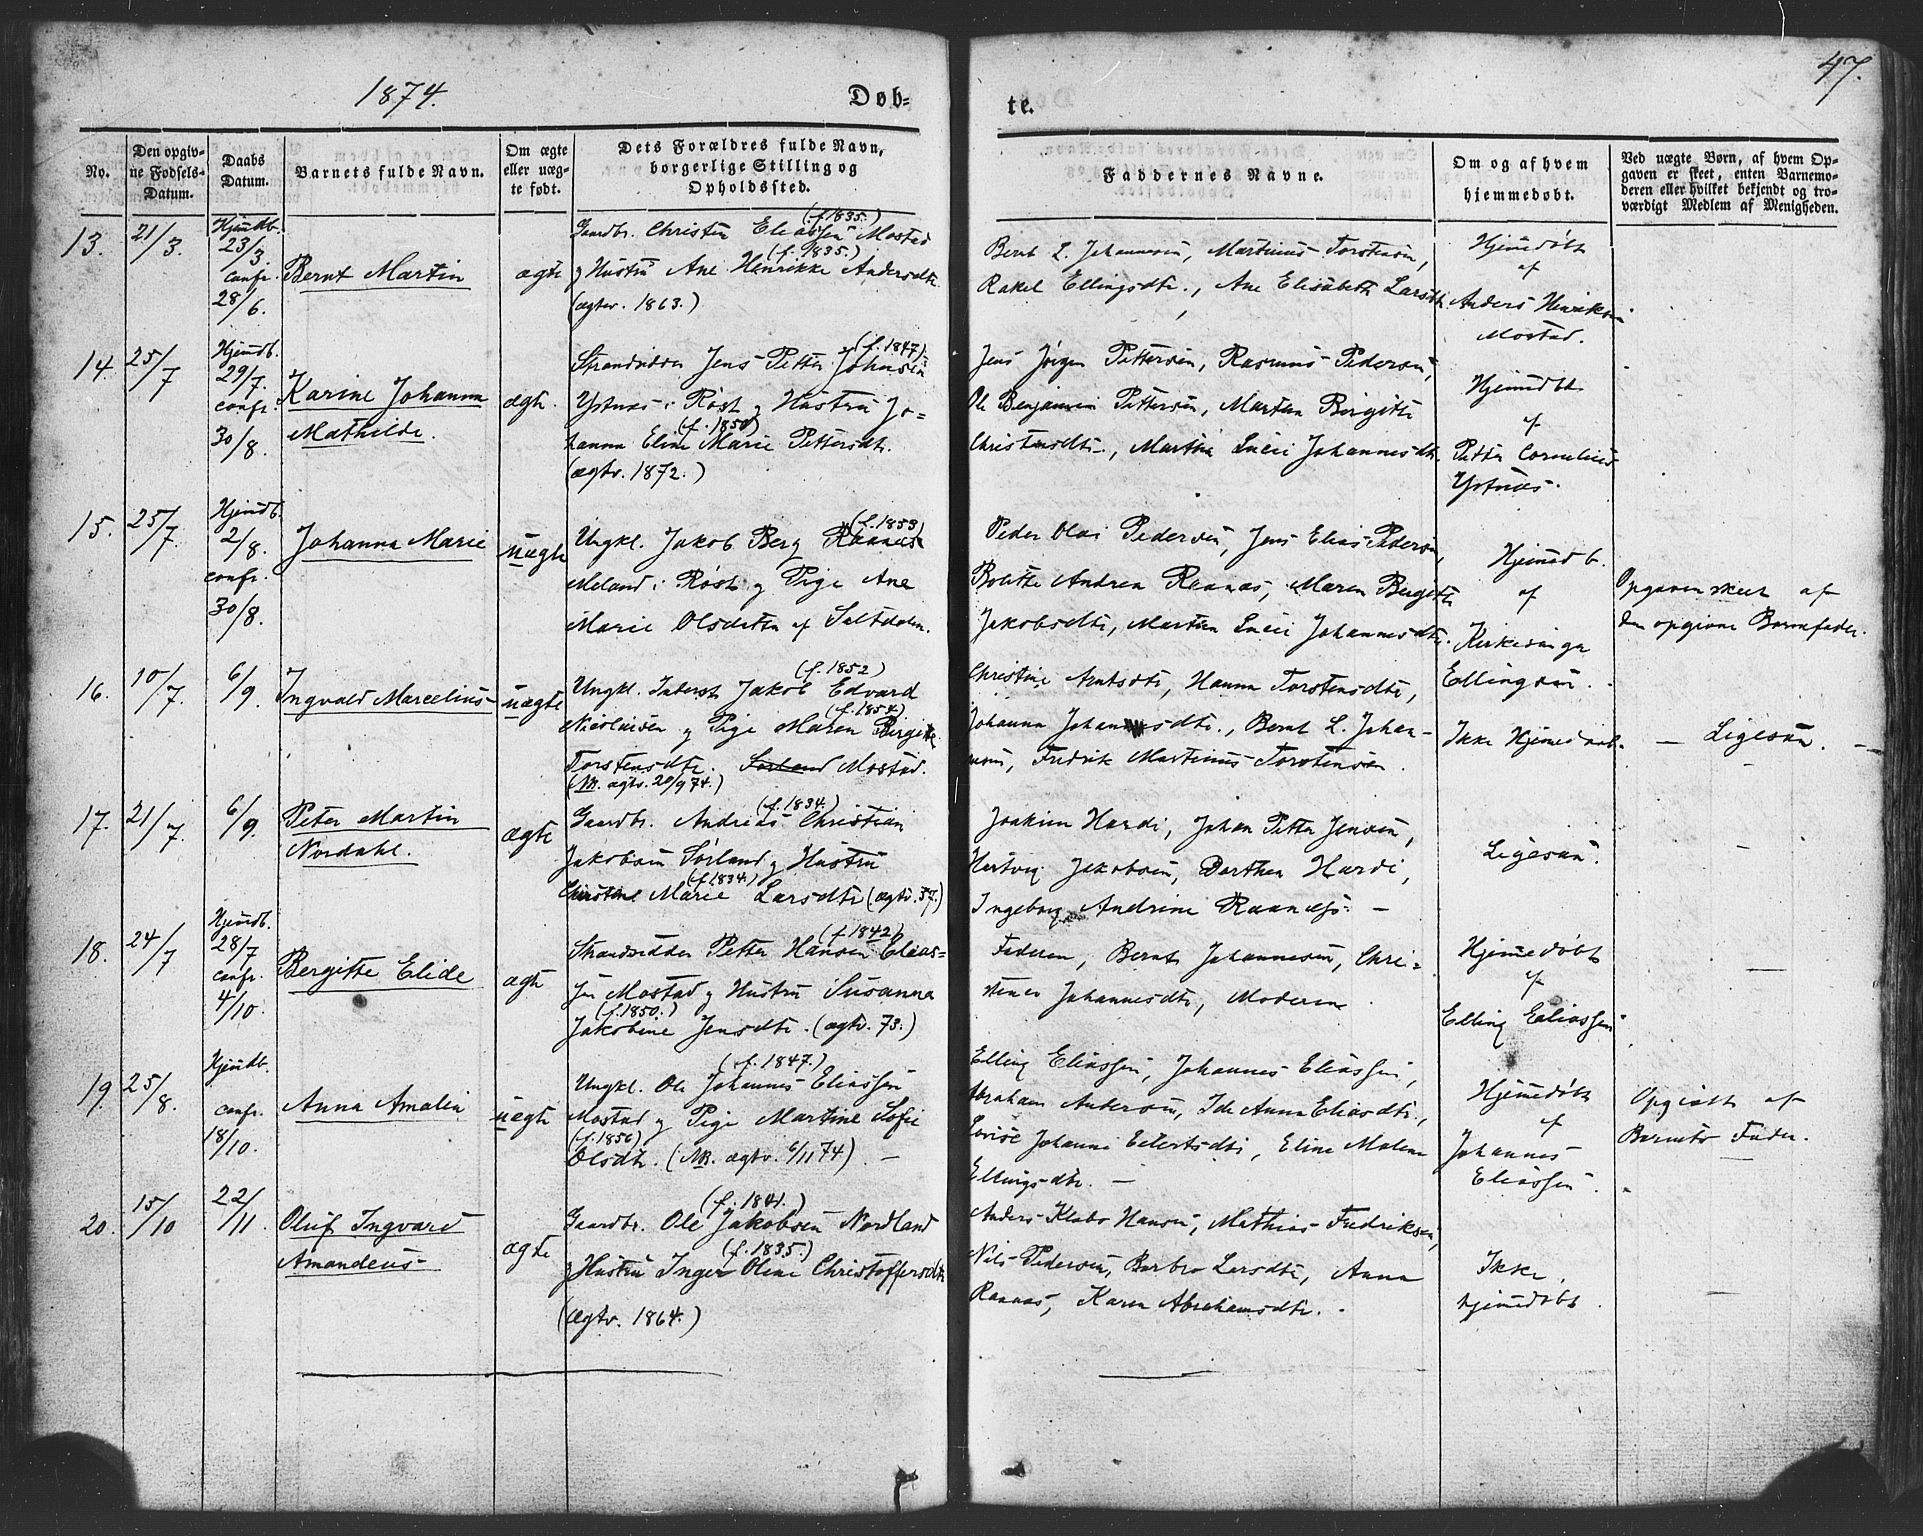 1874. Døb-
te. 47.
No.
Den opgiv-
ne Fødsels-
Datum.
Daabs
Datum.
Barnets fulde Navn.
Om ægte
eller uæg-
te født.
Dets Forældres fulde Navn,
borgerlige Stilling og
Opholdssted.
Faddernes Navne.
Om og af hvem
hjemmedøbt.
Ved uægte Børn, af hvem Op-
gaven er skeet, enten Barnemo-
deren eller hvilket bekjendt og tro-
værdigt Medlem af Menigheden.
13.
21/3.
Hjemdb.
23/3.
confr.
28/6.
Bernt Martin
ægte
(f. 1835.)
Gaardbr. Christen Eliassen Mostad
(f. 1835.)
og Hustru Ane Henrikke Andersdtr.
(ægtev. 1863.)
Bernt L. Johannesen, Martinus Torstensen,
Rakel Ellingsdtr., Ane Elisabeth Larsdtr.
Hjemedøbt
af
Anders Henriksen
Mostad.
14.
25/7
Hjemdb.
29/7.
confr.
30/8.
Karine Johanna
Mathilde.
ægte.
(f. 1847)
Strandsidder Jens Petter Johnsen
Ystnæs i Røst og Hustru Jo-
(f. 1850)
hanna Eline Marie Pettersdtr.
(ægtv. 1872.)
Jens Jørgen Pettersen, Rasmus Pedersen,
Ole Benjamin Pettersen, Marten Birgitte
Christensdtr., Martha Lucie Johannesdtr.
Hjemedøbt
af
Petter Cornelius
Ystnæs.
15.
25/7.
Hjemdb.
2/8.
confr.
30/8.
Johanna Marie
uægte
(f. 1853)
Ungkl. Jakob Berg Raanes
Meland i Røst og Pige Ane
Marie Olsdatter af Saltdalen.
Peder Olai Pedersen, Jens Elias Pedersen,
Bolette Andrea Raanæs, Maren Bergitte
Jakobsdtr., Marten Lucie Johannesdtr.
Hjemedb.
af
Kirkesanger
Ellingsen.
Opgaven skeet af
den opgivne Barnefader.
16.
10/7.
6/9.
Ingvald Marcelius
uægte
(f. 1852)
Ungkl. Inderst Jakob Edvard
(f. 1854)
Nicolaisen og Pige Maren Birgitte
Torstensdtr. Sørland Mostad.
(NB. ægtv. 20/9 74.)
Christine Arntsdtr, Hanna Torstensdtr,
Johanna Johannesdtr., Bernt L. Johan-
nesen, Fredrik Martinus Torstensen.
Ikke Hjemedøbt.
— Ligesaa. —
17.
21/7.
6/9.
Peter Martin
Nordahl.
ægte
(f. 1834.)
Gaardbr. Andreas Christian
Jakobsen Sørland og Hustru
(f. 1834.)
Christine Marie Larsdtr (ægtv. 57.)
Joakim Hardi, Johan Petter Jensen,
Hertvig Jakobsen, Dorthea Hardi,
Ingeborg Andrine Raanæs. —
Ligesaa.
—
18.
24/7
Hjemdb.
28/7
confr.
4/10.
Bergitte Elide
ægte
(f. 1842)
Strandsidder Petter Hansen Elias-
sen Mostad og Hustru Susanna
(f. 1850.)
Jakobine Jensdtr. (ægtv. 73.)
Faderen, Bernt Johannesen, Chri-
stence Johannesdtr, Moderen.
Hjemedøbt
af
Elling Eliassen
—
19.
25/8.
Hjemdb.
confr.
18/10.
Anna Amalia
uægte
(f. 1847.)
Ungkl. Ole Johannes Eliassen
Mostad og Pige Martine Sofie
(f. 1850)
Olsdtr. (NB. ægtv. 6/11 74). —
Elling Eliassen, Johannes Eliassen,
Abraham Andersen, Ide Anna Eliasdtr.,
Lovise Johanne Eilertsdtr, Eline Malene
Ellingsdtr. —
Hjemedøbt
af
Johannes
Eliassen.
Opgivet af
Barnets Fader.
20.
15/10
22/11.
Oluf Ingvard
Amandeus
ægte
(f. 1841.)
Gaardbr. Ole Jakobsen Nordland
(f. 1835.)
og Hustru Inger Oline Christoffersdtr.
(ægtv. 1864.)
Anders Klabo Hansen, Mathias Fredriksen,
Nils Pedersen, Barbro Larsdtr, Anna
Raanæs, Karen Abrahamsdtr.
Ikke
hjemedøbt.
—